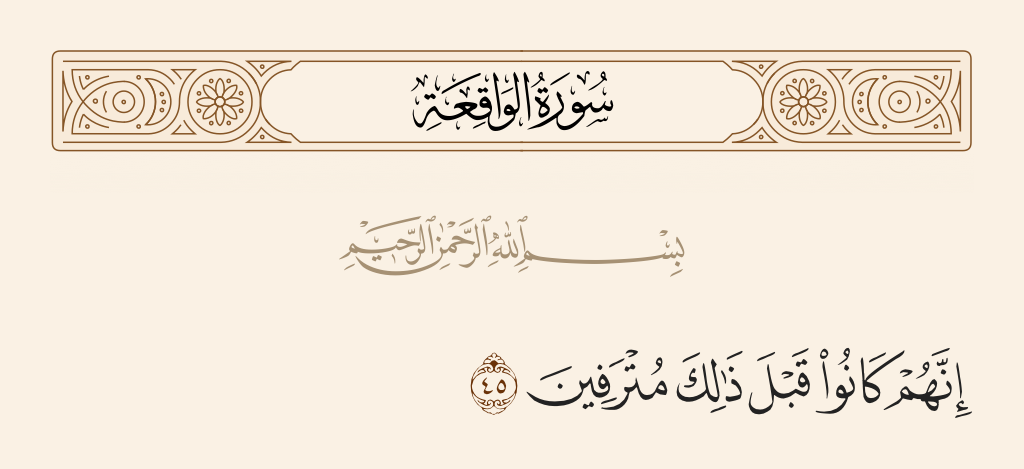 سُورَةُ الوَاقِعَةِ
بِسْمِ ٱللَّهِ ٱلرَّحْمَٰنِ ٱلرَّحِيمِ
إِنَّهُمْ كَانُوا۟ قَبْلَ ذَٰلِكَ مُتْرَفِينَ ٤٥